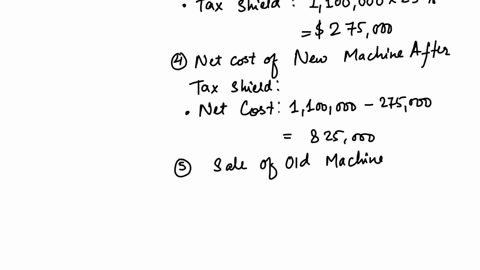 • Tax Shield : 1,100,000 × 25%
= $ 275,000
④ Net cost of New Machine After
Tax Shield:
• Net Cost: 1,100,000 - 275,000
= 825,000
⑤ Sale of Old Machine